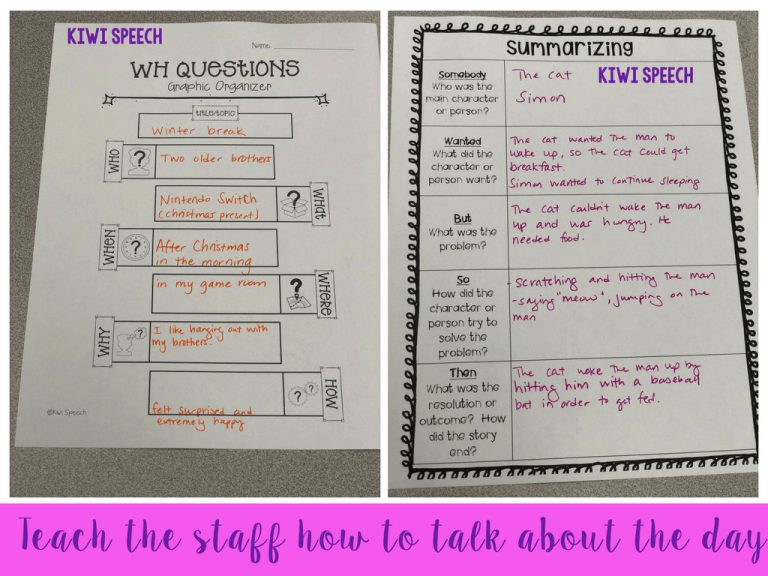 KIWI SPEECH
Name:
WH QUESTIONS
Graphic Organizer
TITLE/TOPIC
Winter break
WHO
?
Two older brothers
Nintendo Switch
(christmas present)
?
WHAT
WHEN
?
After Christmas
in the morning
in my game room
?
WHERE
WHY
?
I like hanging out with
my brothers.
felt surprised and
extremely happy
?
HOW
©Kiwi Speech
Summarizing
KIWI SPEECH
Somebody
Who was the
main character
or person?
The cat
Simon
Wanted
What did the
character or
person want?
The cat wanted the man to
wake up, so the cat could get
breakfast.
Simon wanted to continue sleeping
But
What was the
problem?
The cat couldn't wake the man
up and was hungry. He
needed food.
So
How did the
character or
person try to
solve the
problem?
- Scratching and hitting the man
- saying "meow", jumping on the
man
Then
What was the
resolution or
outcome? How
did the story
end?
The cat woke the man up by
hitting him with a baseball
bat in order to get fed.
Teach the staff how to talk about the day